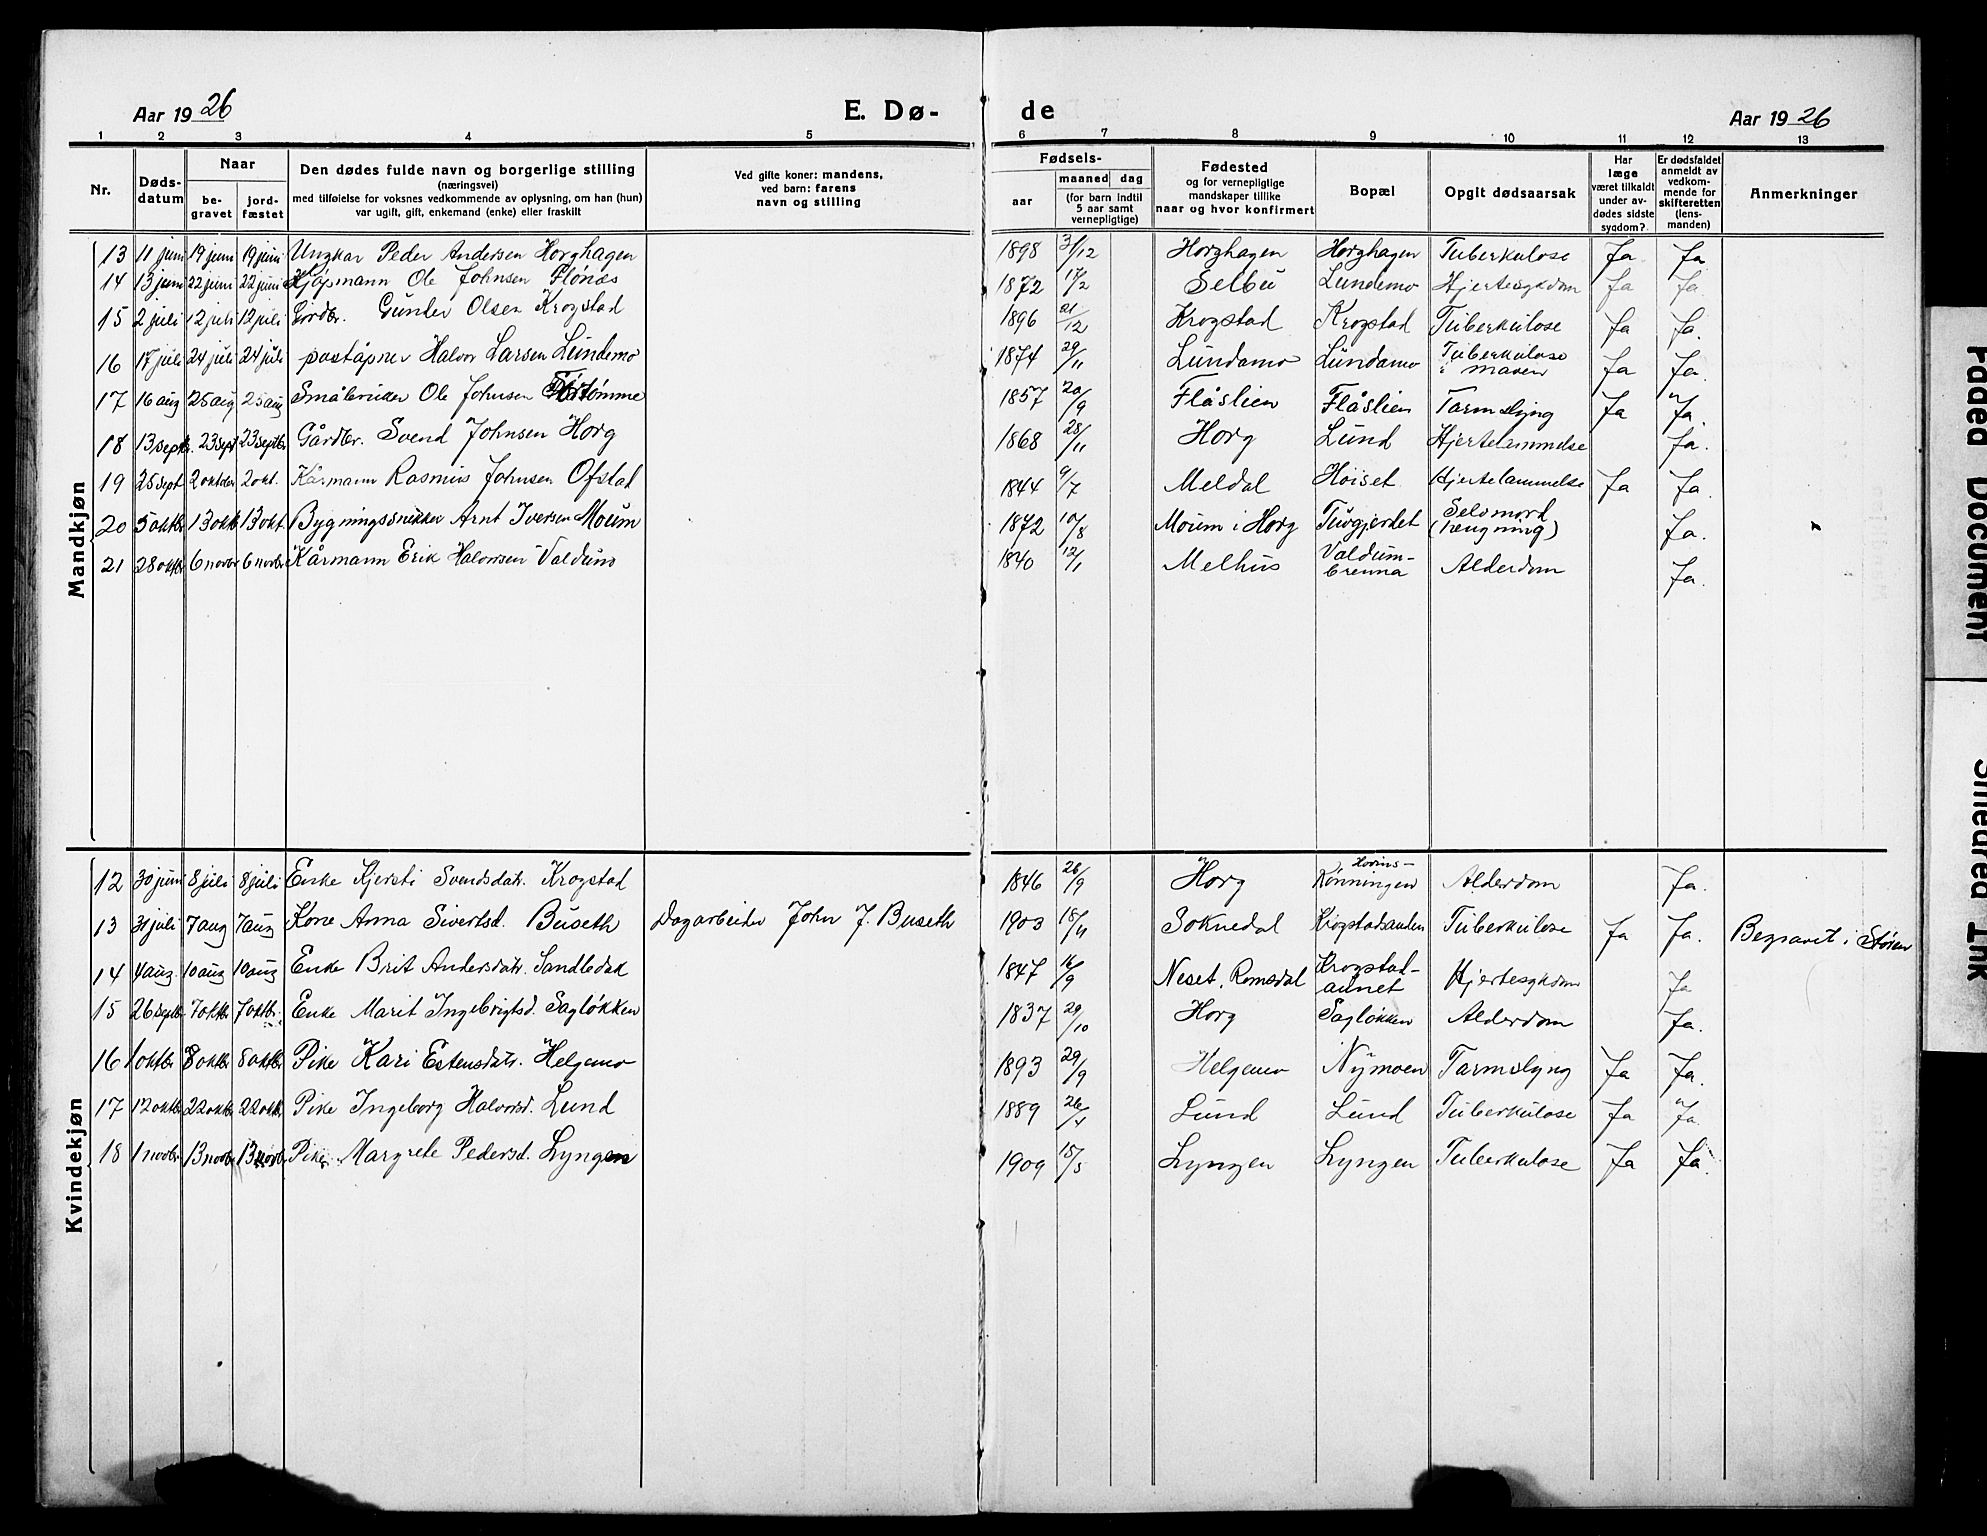 Aar 1926
E. Dø-
de
Aar 1926
1 2 3 4 5 6 7 8 9 10 11 12 13
Nr.
Døds-
datum
Naar
be-
gravet
jord-
fæstet
Den dødes fulde navn og borgerlige stilling
(næringsvei)
med tilføielse for voksnes vedkommende av oplysning, om han (hun)
var ugift, gift, enkemand (enke) eller fraskilt
Ved gifte koner: mandens,
ved barn: farens
navn og stilling
Fødsels-
aar
maaned dag
(for barn indtil
5 aar samt
vernepligtige)
Fødested
og for vernepligtige
mandskaper tillike
naar og hvor konfirmert
Bopæl
Opgit dødsaarsak
Har
læge
været tilkaldt
under av-
dødes sidste
sygdom?
Er dødsfaldet
anmeldt av
vedkom-
mende for
skifteretten
(lens-
manden)
Anmerkninger
Mandkjøn
13 11 juni 19 juni 19 juni Ungkar Peder Andersen Horghagen 1898 3/12 Horghagen Horghagen Tuberkulose Ja Ja
14 13 juni 22 juni 22 juni Kjøpmann Ole Johnsen Flønæs 1872 17/2 Selbu Lundemo Hjertesykdom Ja Ja
15 2 juli 12 juli 12 juli Gordbr. Gunder Olsen Krogstad 1896 21/12 Krogstad Krogstad Tuberkulose Ja Ja.
16 17 juli 24 juli 24 juli poståpner Halvor Larsen Lundemo 1874 29/11 Lundamo Lundamo Tuberkulose i maven Ja Ja.
17 16 aug 25 aug 25 aug Småbruker Ole Johnsen 1857 20/9 Flåslien Flåslien Tarmslyng Ja Ja.
18 13 septbr. 23 sept 23 septbr Gårdbr. Svend Johnsen Horg 1868 28/11 Horg Lund Hjertelammelse Ja.
19 25 sept 2 oktober 2 okt. Kårmann Rasmus Johnsen Ofstad 1844 9/7 Meldal Høiset Hjertelammelse Ja Ja.
20 5 oktbr 13 oktb 13 okt. Bygningssnekker Arnt Iversen Moum 1872 10/8 Moum i Horg Tuvgjerdet Selvmord (hengning) Ja.
21 28 oktbr 6 novbr 6 novbr Kårmann Erik Halvorsen Valdum 1840 12/1 Melhus Valdum-brenna Alderdom Ja.
Kvindekjøn
12 30 juni 8 juli 8 juli Enke Kjersti Svendsdatr. Krogstad 1846 26/9 Horg Hovins-Rønningen Alderdom Ja.
13 31 juli 7 aug 7 aug Kone Anna Sivertsd. Buseth Dagarbeider John J. Buseth 1903 15/11 Soknedal Krogstadsanden Tuberkulose Ja Ja. Begravet i Støren
14 4 aug 10 aug 10 aug Enke Brit Andersdatr. Sandlebak 1847 16/9 Neset, Romsdal Krogstad-aunet Hjertesykdom Ja
15 26 septbr 7 oktbr 7 oktbr. Enke Marit Ingebrigtsd. Sagløkken 1837 29/10 Horg Sagløkken Alderdom Ja.
16 1 oktbr 8 oktbr 8 oktbr Pike Kari Estensdatr. Helgemo 1893 29/9 Helgemo Nymoen Tarmslyng Ja Ja.
17 12 oktbr 22 oktbr 22 oktb. Pike Ingeborg Halvorsd. Lund 1889 26/4 Lund Lund Tuberkulose Ja Ja.
18 1 novbr 13 novbr 13 novbr. Pike Margrete Pedersd. Lyngen 1909 15/5 Lyngen Lyngen Tuberkulose Ja Ja.
Faded Document
Smeared Ink